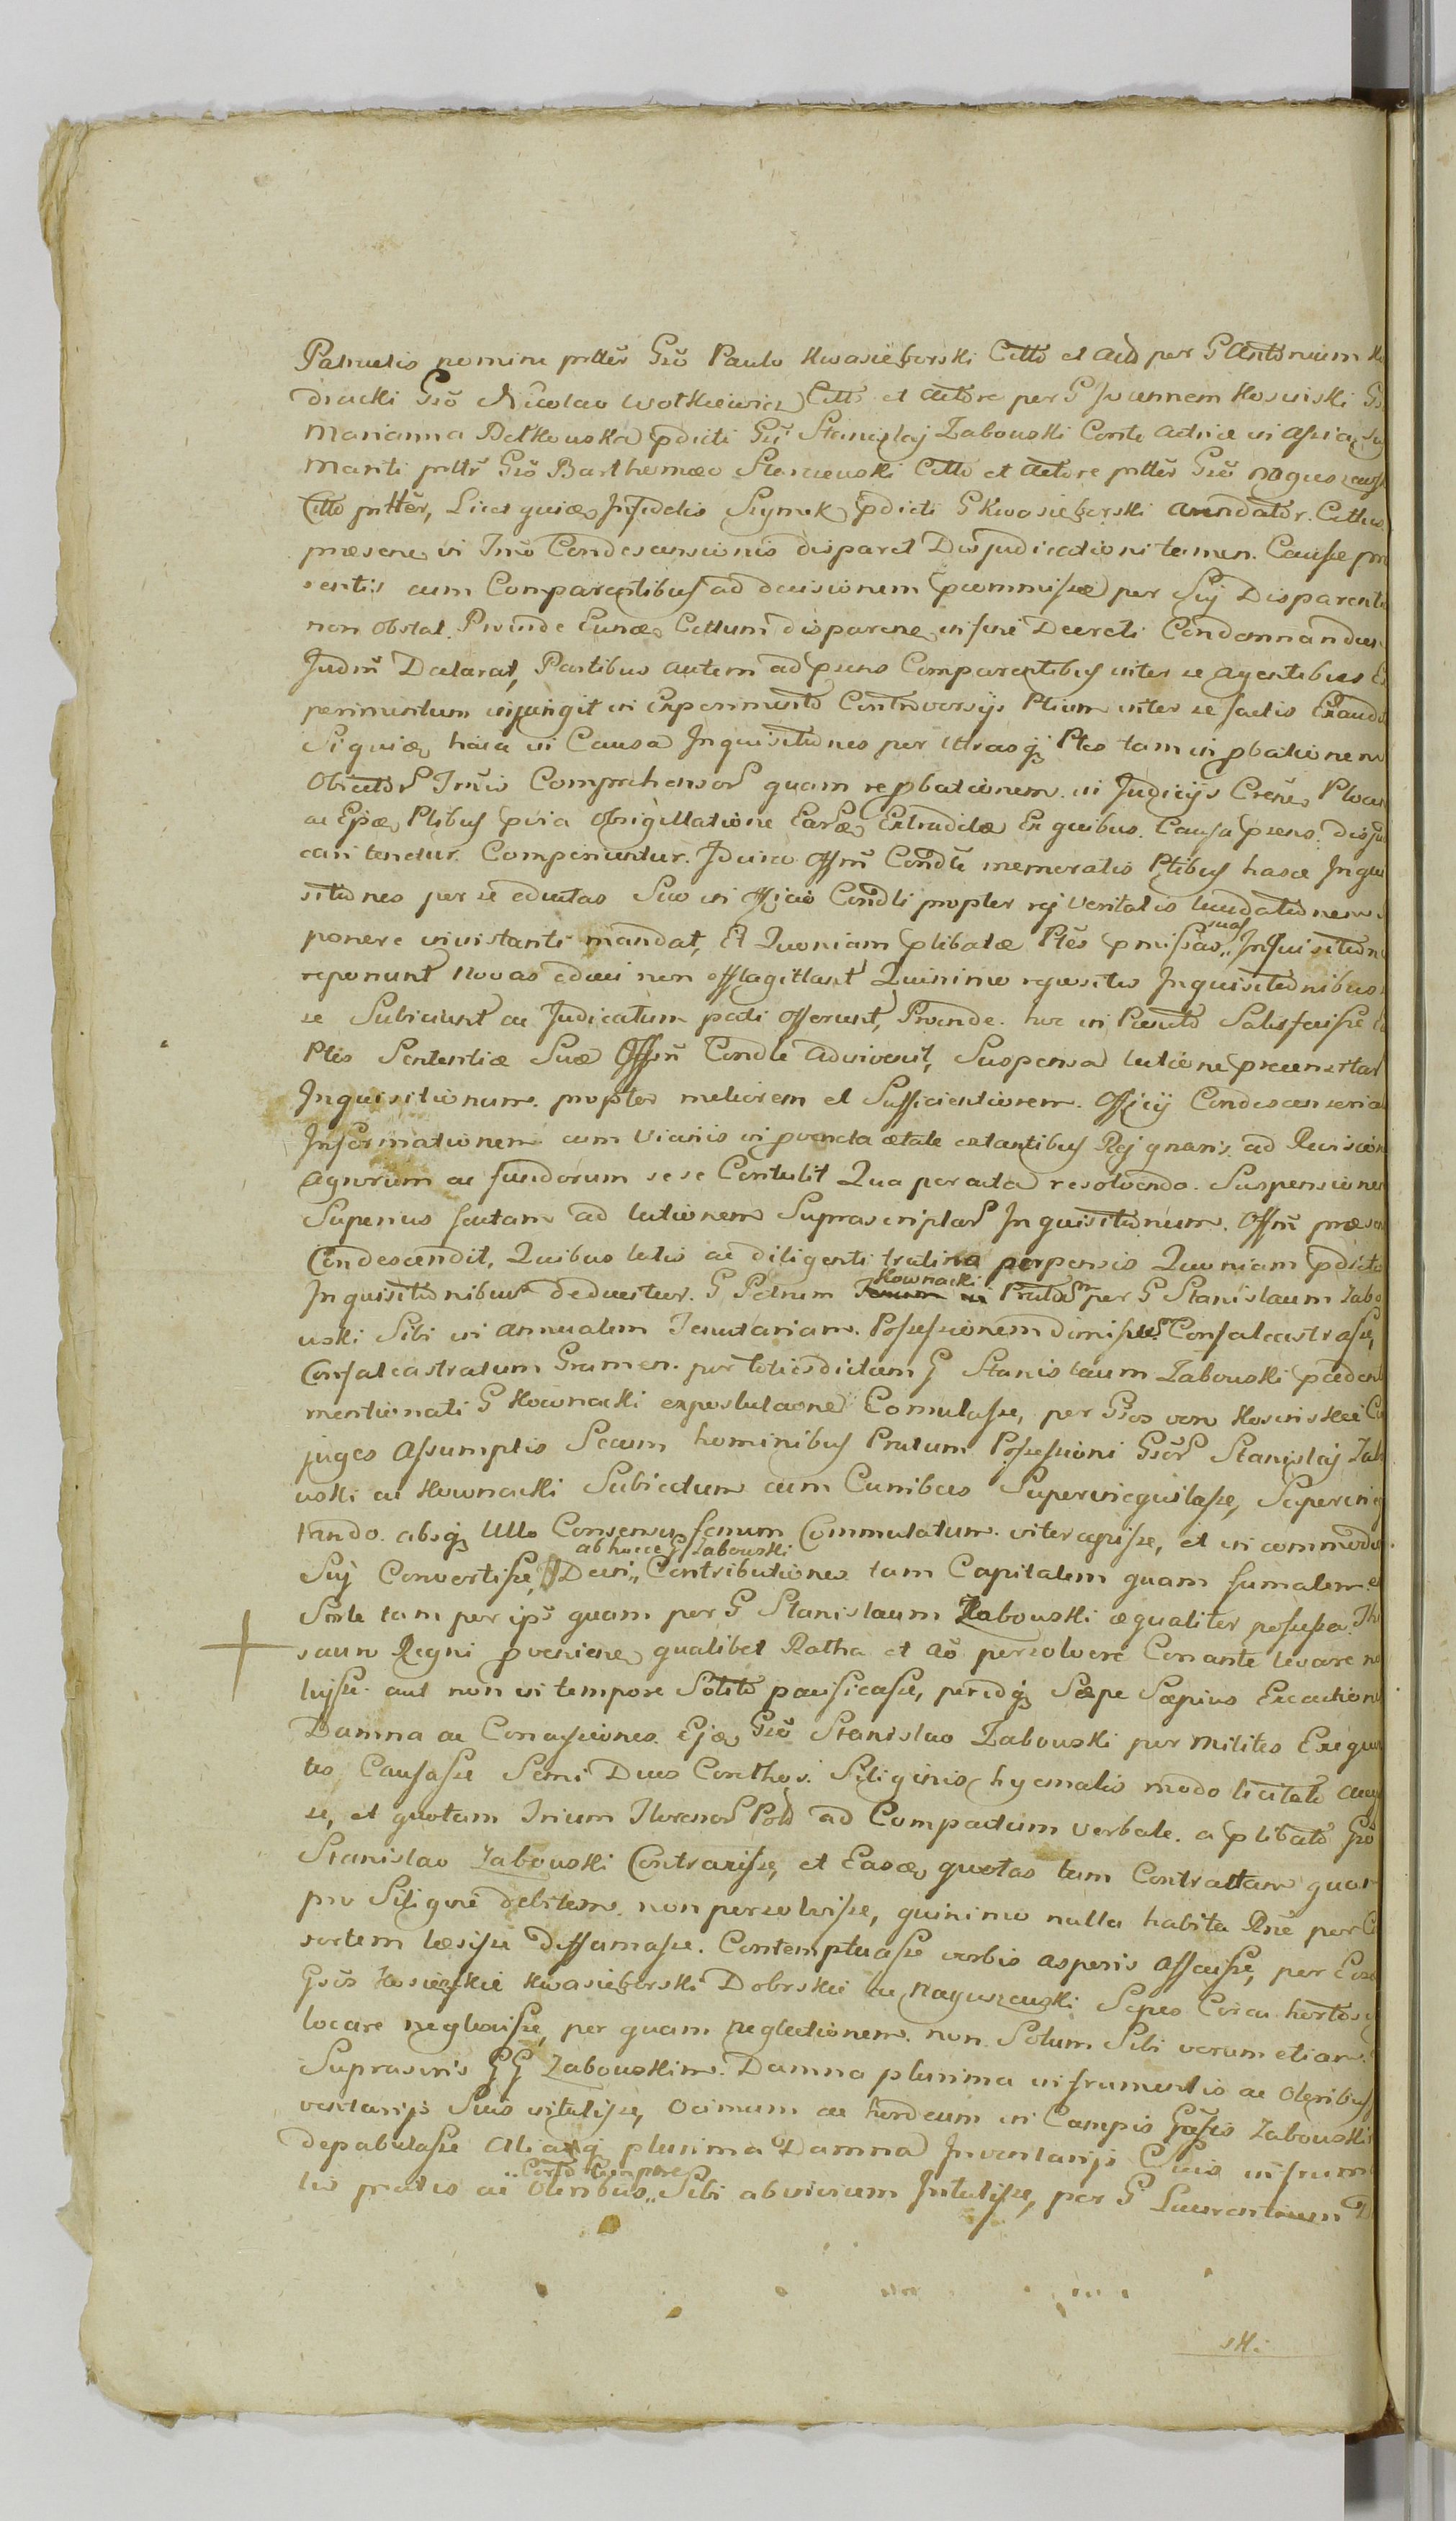 Patruelis nomine prttēr Gsō Paulo Kwasieborski Citto et Acto per G Antonium
diacki Gsō Nicolao Wołkiewicz Citto et Actore per G Joannem Kosinski Gs
Marianna Bełkowska pdicti Gsi Stanislaj Zabouski Conte Actrice in assia
Mariti prttr Gsō Bartholomæo Steniewski Citto et Actore prttēr Gsō Naguszewsk
Citto prttēr, Licet quiæ Infidelis Szymek pdicti G Kwasieborski arendatōr Cittus
præsene in Tmō Condescensionis disparet Disjudicationi tamen Causæ præ
sentis cum Comparentibus ad decisionem pcommissæ per Sui Disparenti
non Obstat. Proinde Eunœ Cittum disparene in fine Decreti Condemnandum
Judm̄ Declarat, Partibus autem ad psens Comparentibus inter se agentibus Ex
perimentum injungit in Experimento Controversijs Ptium inter se factis Exaudi
Siquiæ hacce in Causa Inquisitiones per utrasq Ptes tam in pbationem
Obicator Tmis Comprehensor quam repbationem in Judicijs Crens Plocen
ac Ejæ Ptibus pvia Obsigillatione Earæ Extraditæ Ex quibus Causa psens disju
cari tendtur Comperiuntur. Idcirco Offm̄ Condle memoratis Ptibus hasce Inqui
sitiones per se eductas Suo in Officio Condli propter rej veritatis lucidationem
suas
ponere in instanti mandat, Et Quoniam plibatæ Ptes pmissas,, Inquisition
reponunt Novas educi non efflagittant Quinimo repositis Inquisitionibus
se Subiciunt ac Judicatum pati Offerunt, Proinde hoc in Puncto Satisfecisse
Ptes Sententiæ Suæ Offm̄ Condle advivenit, Suspensa lectione precensitar
Inquisitionum propter meliorem et Sufficientiorem Officij Condescensoria
Informationem cum Vicinis in pvecta ætate extantibus Rej gnaris ad Revision
Agrorum ac fundorum sese Contulit Qua peracta resolvendo Suspensionem
Superius factam ad lectionem Suprascriptar Inquisitionum Offm̄ præsen
Condescendit, Quibus lectis ac diligenti trutina perpensis Quoniam pdictis
Kownacki
Inquisitionibus deducitur G Petrum Pratum per G Stanislaum Zabo
uski Sibi in annualem Tenutariam Possessionem dimissum Confalcastrasse,
Confalcastratum Gramen per totiesdictum G Stanislaum Zabouski pceden
mentionati G Kownacki expostulaone Comulasse, per Gsos vero Kosinskie Co
juges Assumptis Secum hominibus Pratum Possessioni Gsor Stanislaj Zab
uski ac Kownacki Subiectum cum Canibus Superinequitasse, Superineq
tando absq Ullo Consensu fenum Commulatum intercepisse, et in commodum
ab hocce G Zabouski
Suj Convertisse, Deni,, Contributiones tam Capitalem quam fumalem e
Sorte tam per ips quam per G Stanislaum Zabouski æqualiter possessa The
sauro Regni pveniene qualibet Ratha et Ao persolvere Conante levare no
luisse aut non in tempore Solito pacificasse, peridq Sæpe Sæpius Exaction
Damna ac Conassiones Ejæ Gsō Stanislao Zabouski per Milites Exequen
tes Causasse Semi Duos Corethos Siliginis hyemalis modo licitato
se, et quotam Trium Florenor Pold ad Compactum Verbale a plibato Gsō
Stanislao Zabouski Contraxisse, et Easæ quotas tam Contractam quam
pro Siligine debitam non persolvisse, quinimo nulla habita Rne per C
sortem læsisse diffamasse. Contemptuasse verbis asperis Affecisse, per Eos
Gsos Kosinskie Kwasieborski Dobrskie ac Naguszewski Sepes Circa hortos
locare neglexisse, per quam neglectionem non Solum Sibi verum etiam
Suprascris GG Zabouskim Damna plurima in frumentis ac Oleribus
ventarijs Suis intulisse, Ocimum ac hordeum in Campis Gsosis Zabouskie
depabulasse Aliaq plurima Damna Inventarijs Suis in frumen
Certo tempore
tis pratis ac Oleribus,, Sibi abinvicem Intulisse, per G Laurentium D
ski